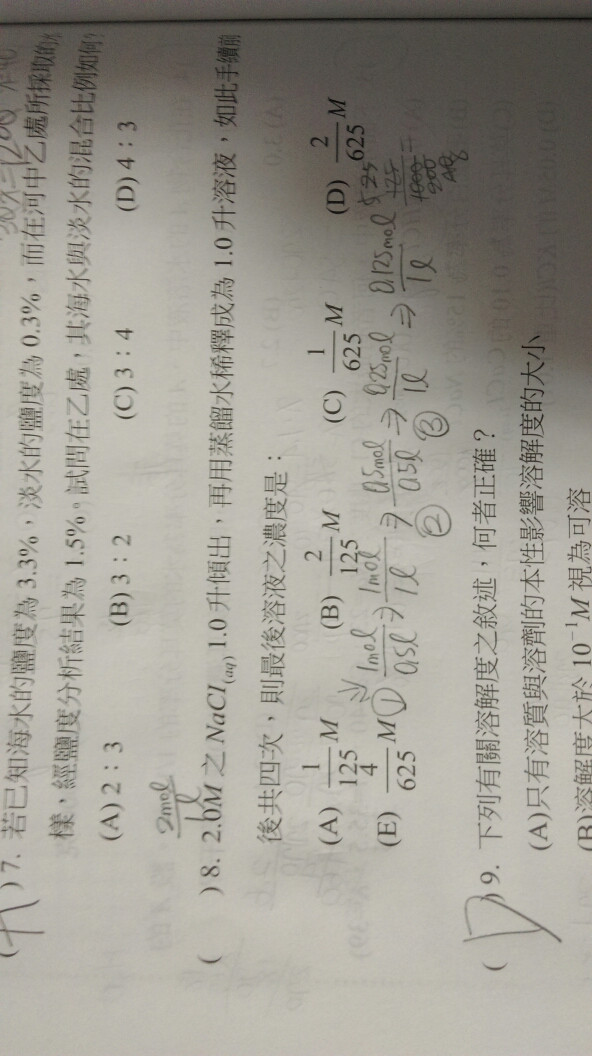 ( A ) 7. 若已知海水的鹽度為 3.3%,淡水的鹽度為 0.3%,而在河中乙處所採取的水
樣,經鹽度分析結果為 1.5%。試問在乙處,其海水與淡水的混合比例如何?
(A) 2:3 (B) 3:2 (C) 3:4 (D) 4:3
2mol
1l
( ) 8. 2.0M 之 NaCl(aq) 1.0 升傾出,再用蒸餾水稀釋成為 1.0 升溶液,如此手續前
後共四次,則最後溶液之濃度是:
(A) 1/125 M (B) 2/125 M (C) 1/625 M (D) 2/625 M
(E) 4/625 M
① 1mol/0.5l ⇒ 1mol/1l ⇒ ② 0.5mol/0.5l ⇒ ③ 0.25mol/1l ⇒ 0.125mol/1l
( D ) 9. 下列有關溶解度之敘述,何者正確?
(A)只有溶質與溶劑的本性影響溶解度的大小
(B)溶解度大於 10⁻¹M 視為可溶